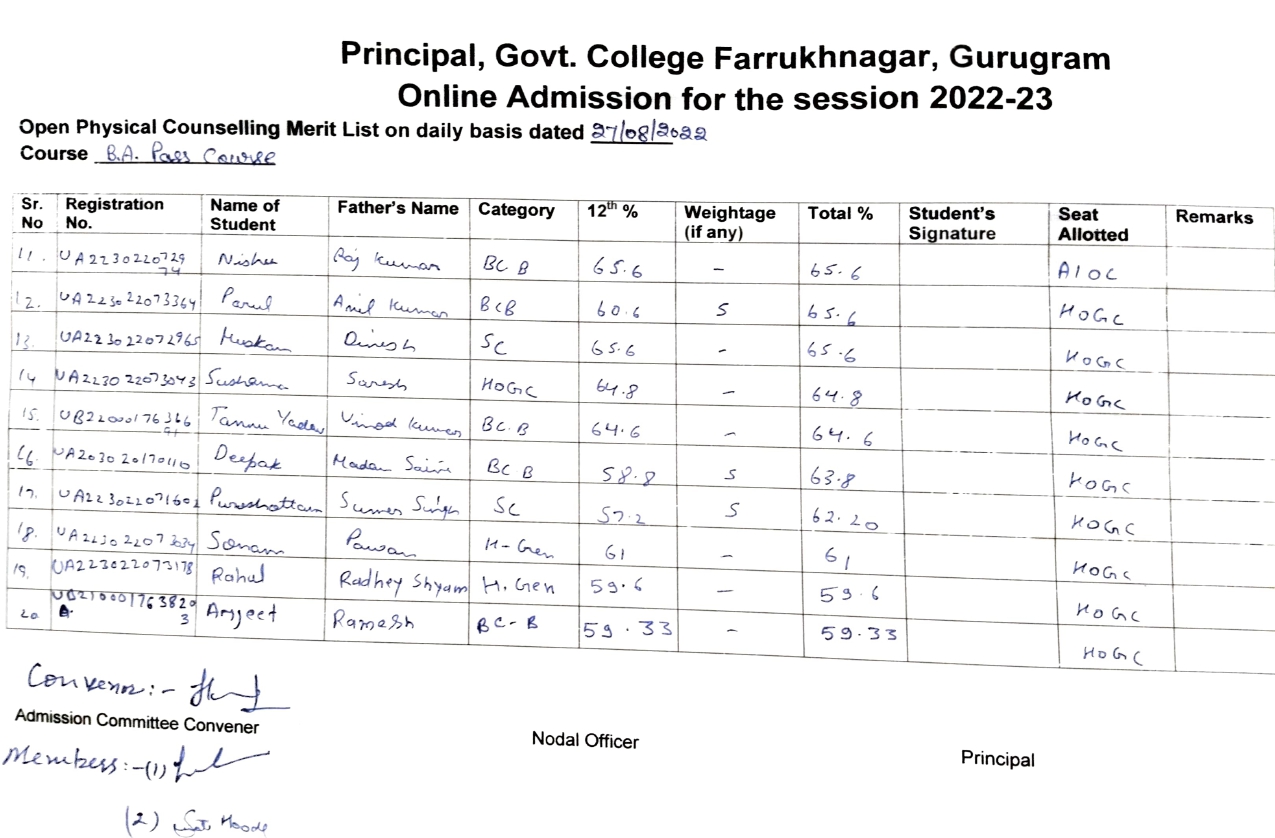 Principal, Govt. College Farrukhnagar, Gurugram
Online Admission for the session 2022-23
Open Physical Counselling Merit List on daily basis dated 27/08/2022
Course B.A. Pass Course
Sr. No Registration No. Name of Student Father's Name Category 12th % Weightage (if any) Total % Student's Signature Seat Allotted Remarks
11. UA223022072974 Nisha Raj Kumar BC B 65.6 - 65.6 AIOC
12. UA223022073364 Parul Anil Kumar BCB 60.6 5 65.6 HOGC
13. UA223022072965 Muskan Dinesh SC 65.6 - 65.6 HOGC
14 UA223022073043 Sushama Suresh HOGC 64.8 - 64.8 HOGC
15. Tannu Yadav Vinod Kumar BC.B 64.6 - 64.6 HOGC
16. UA203020170110 Deepak Madan Saini BC B 58.8 5 63.8 HOGC
17. UA223022071602 Purushottam Sumer Singh SC 57.2 5 62.20 HOGC
18. UA223022073034 Sonam Pawan H-Gen 61 - 61 HOGC
19. UA223022073178 Rahul Radhey Shyam H. Gen 59.6 - 59.6 HOGC
20 Arjeet Ramesh BC-B 59.33 - 59.33 HOGC
Convenor:-
Admission Committee Convener
Nodal Officer
Principal
Members:-(1)
(2)